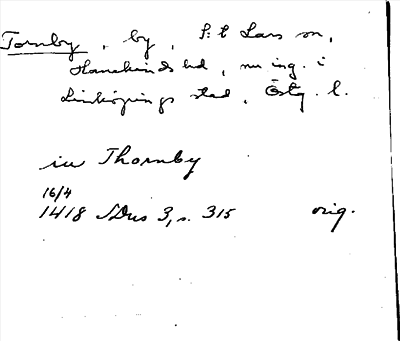 Tornby, by, S:t Lars sn,
Hanekinds hd, nu ing. i
Linköpings stad, Östg. l.
in Thornby
16/4
1418 SDns 3, s. 315 orig.